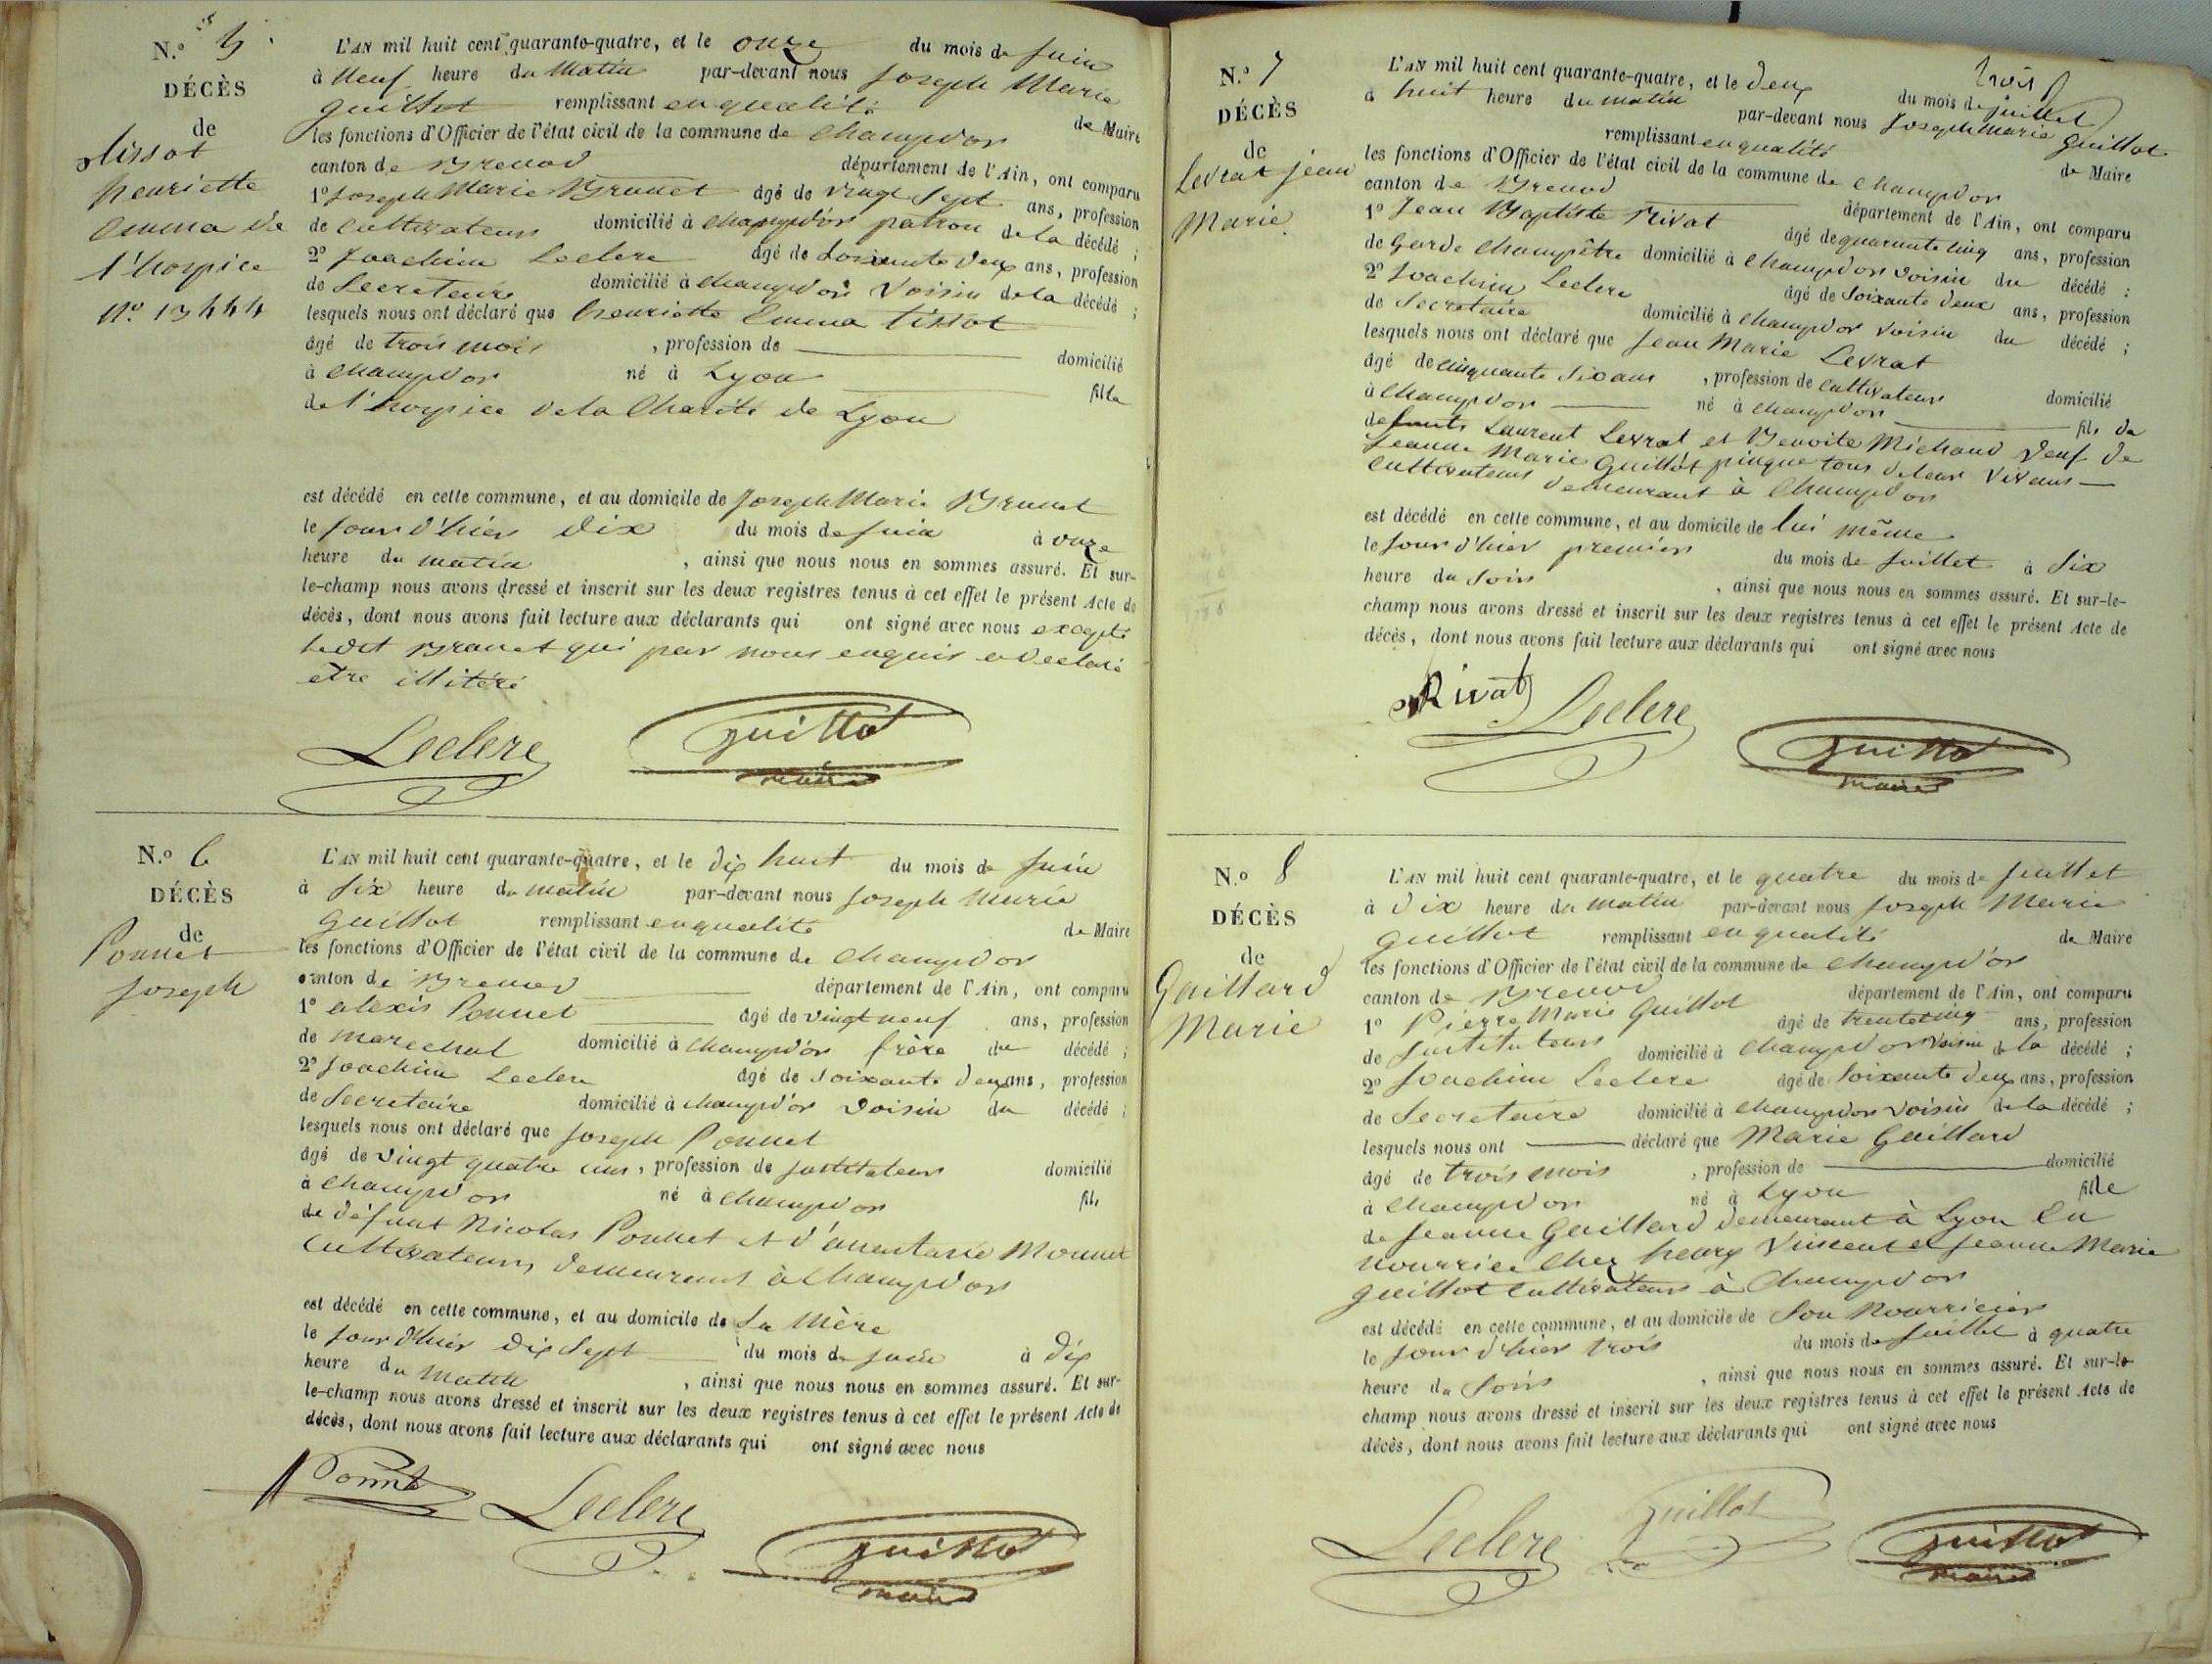 N.o 5
DÉCÈS
de
tissot
henriette
Emma de
l'hospice
no. 13444
L'AN mil huit cent quarante-quatre, et le onze du mois de juin
à neuf heure du matin par-devant nous joseph Marie
guillot remplissant en qualité de Maire
les fonctions d'Officier de l'état civil de la commune de champdor
canton de Brenod département de l'Ain, ont comparu
1o joseph Marie Brunet âgé de vingt sept ans, profession
de cultivateur domicilié à champd'or patron de la décédé ;
2o joachim Leclere âgé de soixante deux ans, profession
de Secretaire domicilié à champdor voisin de la décédé ;
lesquels nous ont déclaré que henriette Emma tissot
âgé de trois mois , profession de domicilié
à champdor né à Lyon fille
de l'hospice de la Charité de Lyon
est décédé en cette commune, et au domicile de joseph Marie Brunet
le jour d'hier dix du mois de juin à onze
heure du matin , ainsi que nous nous en sommes assuré. Et sur-
le-champ nous avons dressé et inscrit sur les deux registres tenus à cet effet le présent Acte de
décès, dont nous avons fait lecture aux déclarants qui ont signé avec nous excepté
ledit Brunet qui par nous enquis a declaré
etre illitéré
Leclere guillot
maire
N.o 6
DÉCÈS
de
Ponnet
joseph
L'AN mil huit cent quarante-quatre, et le dix huit du mois de juin
à six heure du matin par-devant nous joseph Marie
guillot remplissant en qualité de Maire
les fonctions d'Officier de l'état civil de la commune de champdor
canton de Brenod département de l'Ain, ont comparu
1o alexis Ponnet âgé de vingt neuf ans, profession
de marechal domicilié à champd'or frère du décédé ;
2o joachim Leclere âgé de soixante deux ans, profession
de Secretaire domicilié à champd'or voisin du décédé ;
lesquels nous ont déclaré que joseph Ponnet
âgé de vingt quatre ans , profession de jnstituteur domicilié
à champdor né à champdor fils
de défunt Nicolas Ponnet et d'anastasie Monnet
cultivateurs, demeurant à champdor
est décédé en cette commune, et au domicile de sa mère
le jour d'hier dix sept du mois de juin à dix
heure du matin , ainsi que nous nous en sommes assuré. Et sur-
le-champ nous avons dressé et inscrit sur les deux registres tenus à cet effet le présent Acte de
décès, dont nous avons fait lecture aux déclarants qui ont signé avec nous
Ponnet Leclere guillot
maire
trois
N.o 7
DÉCÈS
de
Levrat jean
Marie
L'AN mil huit cent quarante-quatre, et le deux du mois de juillet
à huit heure du matin par-devant nous joseph Marie guillot
remplissant en qualité de Maire
les fonctions d'Officier de l'état civil de la commune de champdor
canton de Brenod département de l'Ain, ont comparu
1o Jean Baptiste Rivat âgé de quarante cinq ans, profession
de Garde champêtre domicilié à champdor voisin du décédé ;
2o joachim Leclere âgé de soixante deux ans, profession
de Secretaire domicilié à champdor voisin du décédé ;
lesquels nous ont déclaré que jean Marie Levrat
âgé de cinquante six ans , profession de cultivateur domicilié
à champdor né à champdor fils de
defunts Laurent Levrat et Benoite Michaud veuf de
jeanne Marie Guillot pinque tous de leur vivans
cultivateurs demeurant à champdor
est décédé en cette commune, et au domicile de lui même
le jour d'hier premier du mois de juillet à six
heure du soir , ainsi que nous nous en sommes assuré. Et sur-le-
champ nous avons dressé et inscrit sur les deux registres tenus à cet effet le présent Acte de
décès, dont nous avons fait lecture aux déclarants qui ont signé avec nous
Rivat Leclere guillot
maire
N.o 8
DÉCÈS
de
Gaillard
Marie
L'AN mil huit cent quarante-quatre, et le quatre du mois de juillet
à dix heure du matin par-devant nous joseph Marie
guillot remplissant en qualité de Maire
les fonctions d'Officier de l'état civil de la commune de champd'or
canton de Brenod département de l'Ain, ont comparu
1o Pierre Marie Guillot âgé de trente cinq ans, profession
de jnstituteur domicilié à champdor voisin de la décédé ;
2o joachim Leclere âgé de soixante deux ans, profession
de Secretaire domicilié à champdor voisin de la décédé ;
lesquels nous ont déclaré que Marie Gaillard
âgé de trois mois , profession de domicilié
à champdor né à Lyon fille
de jeanne Gaillard demeurant à Lyon En
nourrice chez henry Vincent et jeanne Marie
guillot cultivateurs à champdor
est décédé en cette commune, et au domicile de son nourricier
le jour d'hier trois du mois de juillet à quatre
heure du soir , ainsi que nous nous en sommes assuré. Et sur-le-
champ nous avons dressé et inscrit sur les deux registres tenus à cet effet le présent Acte de
décès, dont nous avons fait lecture aux déclarants qui ont signé avec nous
Leclere guillot guillot
maire